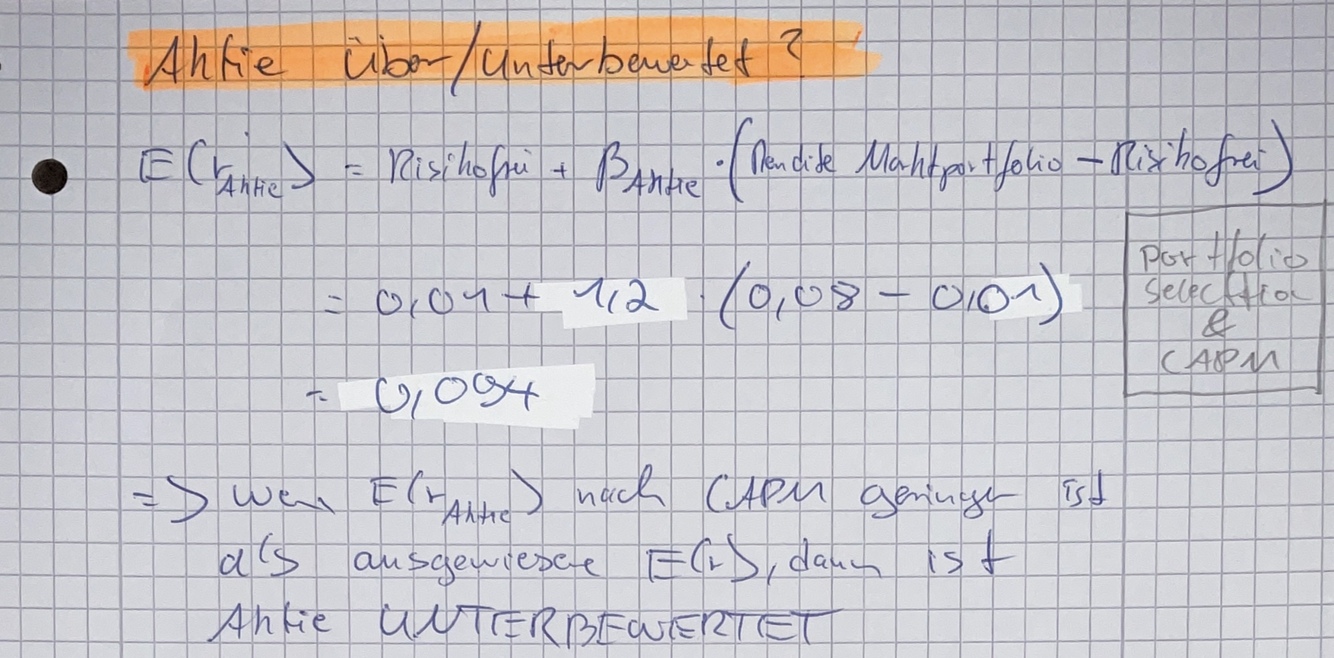 Aktie über/Unterbewertet?
E(r_Aktie) = Risikofrei + β_Aktie · (Rendite Marktportfolio - Risikofrei)
= 0,01 + 1,2 · (0,08 - 0,01)
= 0,094
Portfolio
Selection
&
CAPM
=> Wenn E(r_Aktie) nach CAPM geringer ist
als ausgewiesene E(r), dann ist
Aktie UNTERBEWERTET